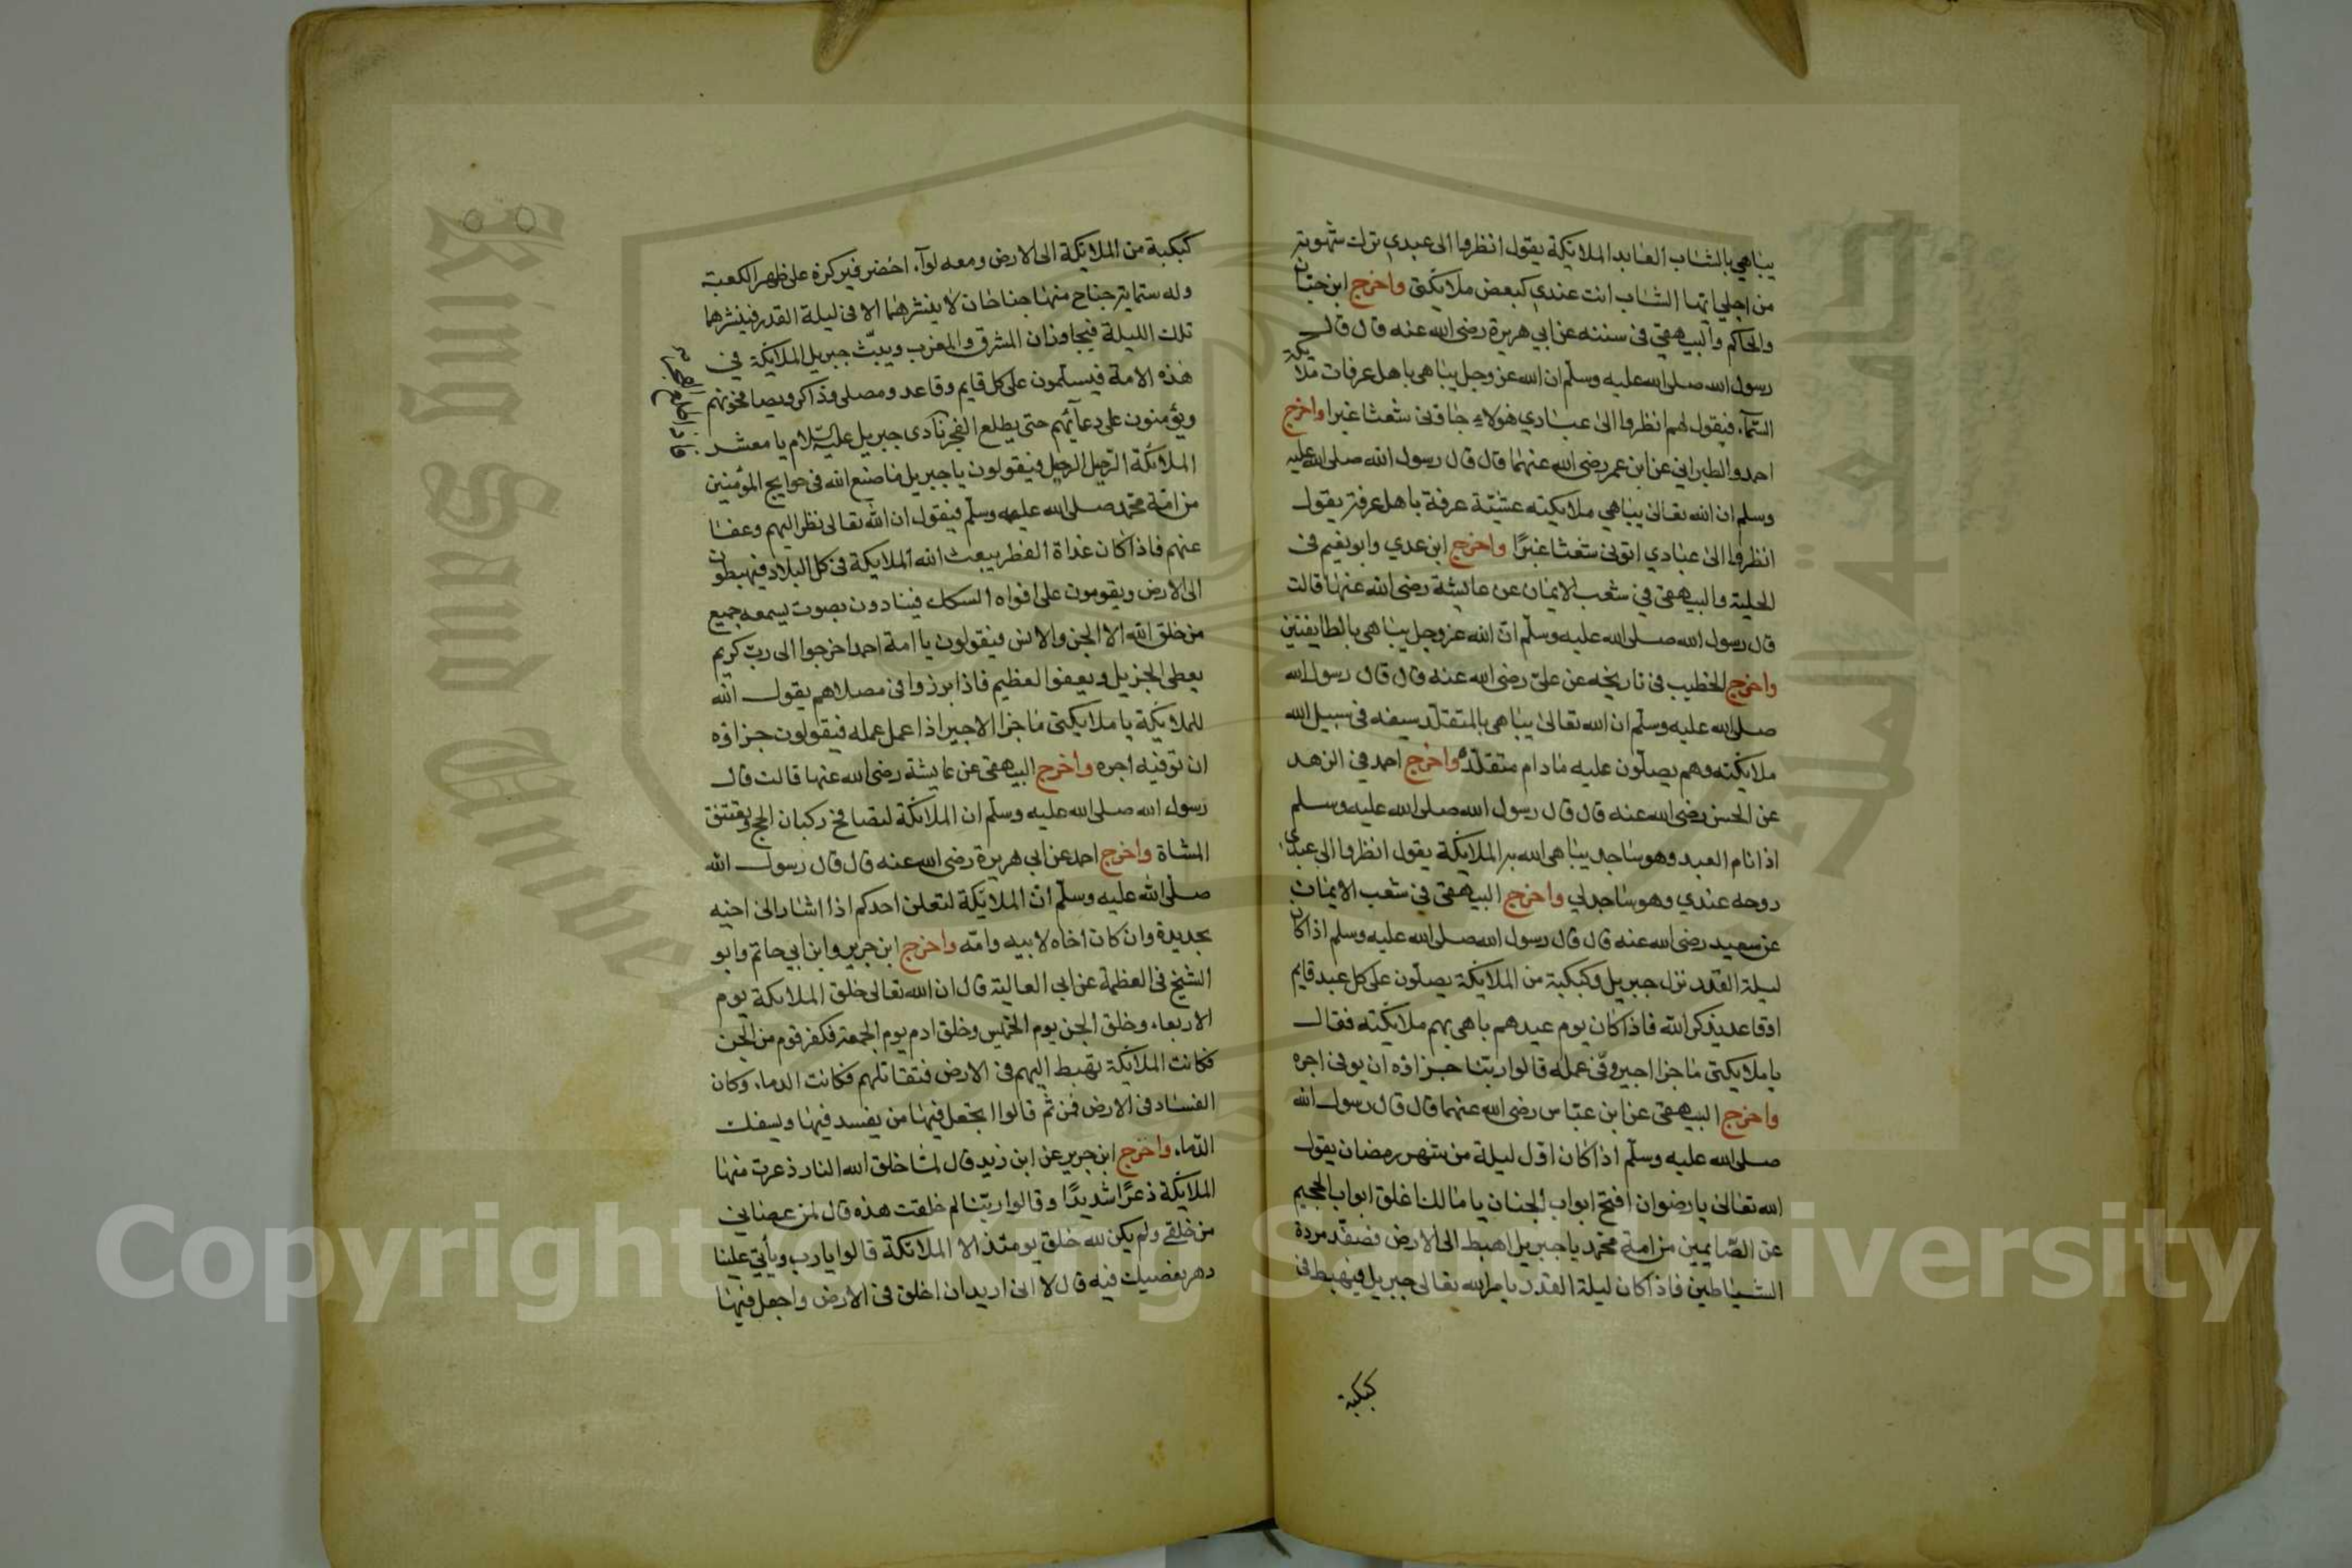 يباهي بالشاب العابد الملايكة يقول انظروا الى عبدي ترك شهوته
من اجلي ايها الشاب انت عندي كبعض ملايكتي واخرج ابن حبان
والحاكم والبيهقي في سننه عن ابي هريرة رضي الله عنه قال قال
رسول الله صلى الله عليه وسلم ان الله عز وجل يباهي باهل عرفات ملائكة
السماء فيقول لهم انظروا الى عبادي هولاء جاوني شعثا غبرا واخرج
احمد والطبراني عن ابن عمر رضي الله عنهما قال قال رسول الله صلى الله عليه
وسلم ان الله تعالى يباهي ملايكته عشية عرفة باهل عرفة يقول
انظروا الى عبادي اتوني شعثا غبرا واخرج ابن عدي وابو نعيم في
الحلية والبيهقي في شعب الايمان عن عايشة رضي الله عنها قالت
قال رسول الله صلى الله عليه وسلم ان الله عز وجل يباهي بالطايفتين
واخرج الخطيب في تاريخه عن علي رضي الله عنه قال قال رسول الله
صلى الله عليه وسلم ان الله تعالى يباهي بالمتقلد سيفه في سبيل الله
ملائكته وهم يصلون عليه مادام متقلده واخرج احمد في الزهد
عن الحسن رضي الله عنه قال قال رسول الله صلى الله عليه وسلم
اذا نام العبد وهو ساجد يباهي الله به الملائكة يقول انظروا الى عبدي
روحه عندي وهو ساجد لي واخرج البيهقي في شعب الايمان
عن سعيد رضي الله عنه قال قال رسول الله صلى الله عليه وسلم اذا كان
ليلة القدر نزل جبريل وكبكبة من الملائكة يصلون على كل عبد قايم
او قاعد يذكر الله فاذا كان يوم عيدهم باهى بهم ملائكته فقال
يا ملايكتي ما جزا اجير وفى عمله قالوا ربنا جزاؤه ان يوفى اجره
واخرج البيهقي عن ابن عباس رضي الله عنهما قال قال رسول الله
صلى الله عليه وسلم اذا كان اول ليلة من شهر رمضان يقول
الله تعالى يا رضوان افتح ابواب الجنان يا مالك اغلق ابواب الجحيم
عن الصايمين من امة محمد يا جبريل اهبط الى الارض فصفد مردة
الشياطين فاذا كان ليلة القدر يامر الله تعالى جبريل فيهبط في
كبكبة
كبكبة من الملائكة الى الارض ومعه لواء اخضر فيركزه على ظهر الكعبة
وله ستماية جناح منها جناحان لا ينشرهما الا في ليلة القدر فينشرهما
تلك الليلة فيجاوزان المشرق والمغرب ويبث جبريل الملائكة في
هذه الامة فيسلمون على كل قايم وقاعد ومصلى وذاكر ويصافحونهم
ويؤمنون على دعائهم حتى يطلع الفجر نادى جبريل عليه السلام يا معشر
الملائكة الرحيل الرحيل فيقولون يا جبريل ما صنع الله في حوايج المؤمنين
من امة محمد صلى الله عليه وسلم فيقول ان الله تعالى نظر اليهم وعفا
عنهم فاذا كان غداة الفطر يبعث الله الملايكة في كل البلاد فيهبطون
الى الارض ويقومون على افواه السكك فينادون بصوت يسمعه جميع
من خلق الله الا الجن والانس فيقولون يا امة احمد اخرجوا الى رب كريم
يعطي الجزيل ويعفوا لعظيم فاذا برزوا في مصلاهم يقول الله
للملائكة يا ملايكتي ما جزا الاجير اذا عمل عمله فيقولون جزاؤه
ان توفيه اجره واخرج البيهقي عن عايشة رضي الله عنها قالت قال
رسول الله صلى الله عليه وسلم ان الملائكة لتصافح ركبان الحج وتعتنق
المشاة واخرج احمد عن ابي هريرة رضي الله عنه قال قال رسول الله
صلى الله عليه وسلم ان الملائكة لتعلن احدكم اذا اشار الى اخيه
بحديدة وان كان اخاه لابيه وامه واخرج ابن جرير وابن ابي حاتم وابو
الشيخ في العظمة عن ابي العالية قال ان الله تعالى خلق الملائكة يوم
الاربعاء وخلق الجن يوم الخميس وخلق ادم يوم الجمعة فكفر قوم من الجن
فكانت الملائكة تهبط اليهم في الارض فتقاتلهم فكانت الدماء وكان
الفساد في الارض فمن ثم قالوا اتجعل فيها من يفسد فيها ويسفك
الدماء واخرج ابن جرير عن ابن زيد قال لما خلق الله النار ذعرت منها
الملائكة ذعرا شديدا وقالوا ربنا لم خلقت هذه قال لمن عصاني
من خلقي ولم يكن لله خلق يومئذ الا الملائكة قالوا يا رب ويأتي علينا
دهر نعصيك فيه قال لا اني اريد ان اخلق في الارض واجعل فيها
King Saud Univer
Copyright © King Saud University